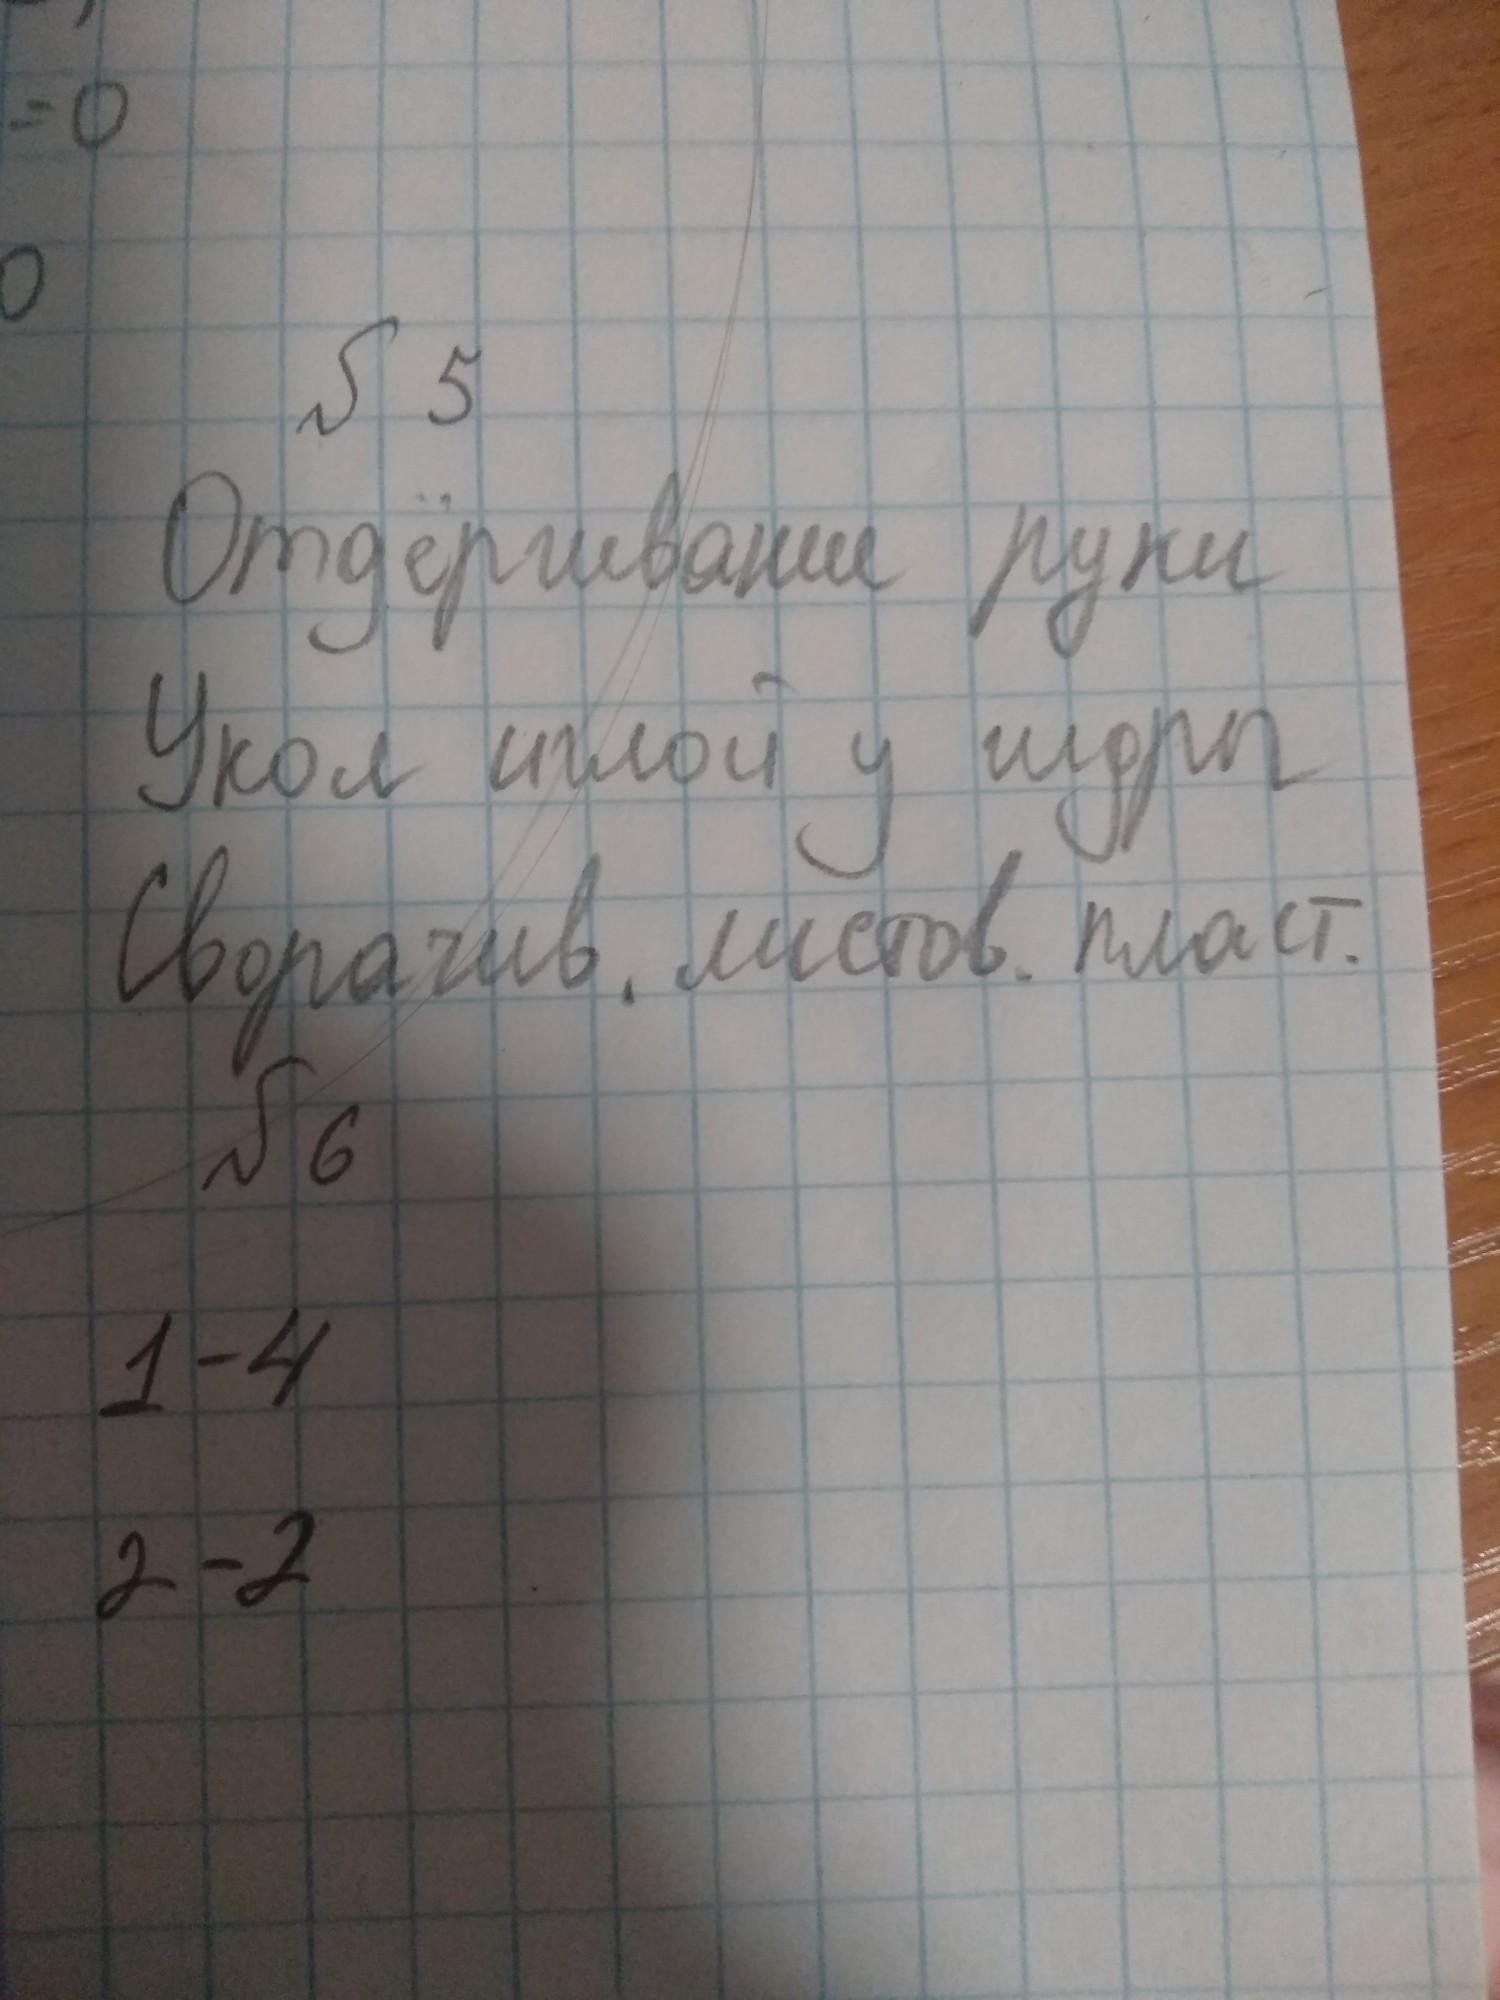 =0
0
№ 5
Отдёргивание руки
Укол иглой у гидры
Сворачив. листов. пласт.
№ 6
1-4
2-2